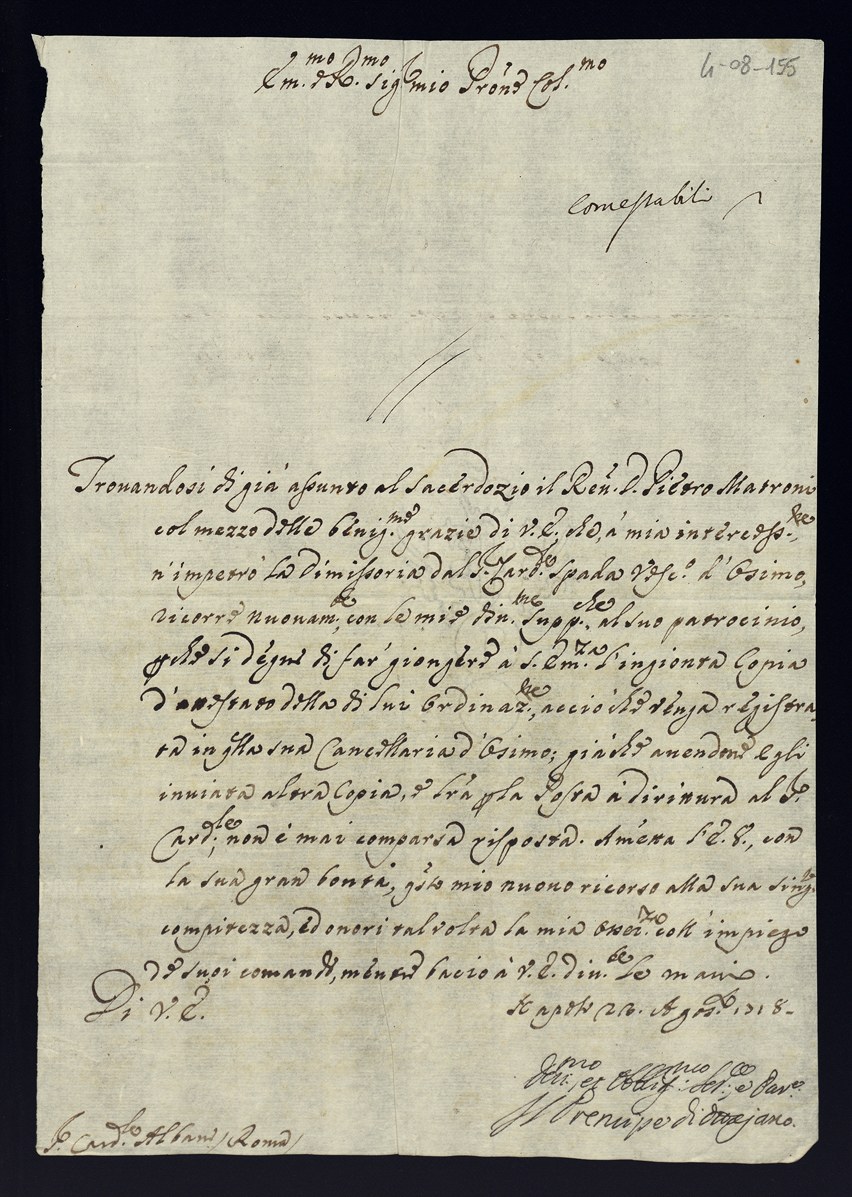 4-08-155
Em.mo e R.mo Sig.r mio Prōne Col.mo
Comestabili
Trouandosi di già assunto al Sacerdozio il Reu. D. Pietro Matroni
col mezzo delle benig.me grazie di V.E., che, à mia intercess.ne,
n'impetrò la Dimissoria dal S. Card.le Spada Vesc.o d'Osimo,
ricorre nuouam.te, con le mie diu.me supp.che, al suo patrocinio,
che si degni di far giongere à S. Em.za l'ingionta Copia
d'attestato della di lui Ordinaz.ne, acciò che venga registra-
ta in qlla sua Cancellaria d'Osimo; già che auendone Egli
inuiata altra Copia, per la Posta à dirittura al S.r
Card.le, non è mai comparsa risposta. Ametta l'E.V., con
la sua gran bontà, qsto mio nuouo ricorso alla sua sing.re
compitezza, ed onori talvolta la mia osser.za coll'impiego
de suoi comandi, mentre bacio à V.E. diu.te le mani.
Di V.E.
Napoli 22. Agos.to 1718-
Diu.mo, et Obblig.mo Ser.re e
Il Prencipe di
S. Card.le Albani (Roma)